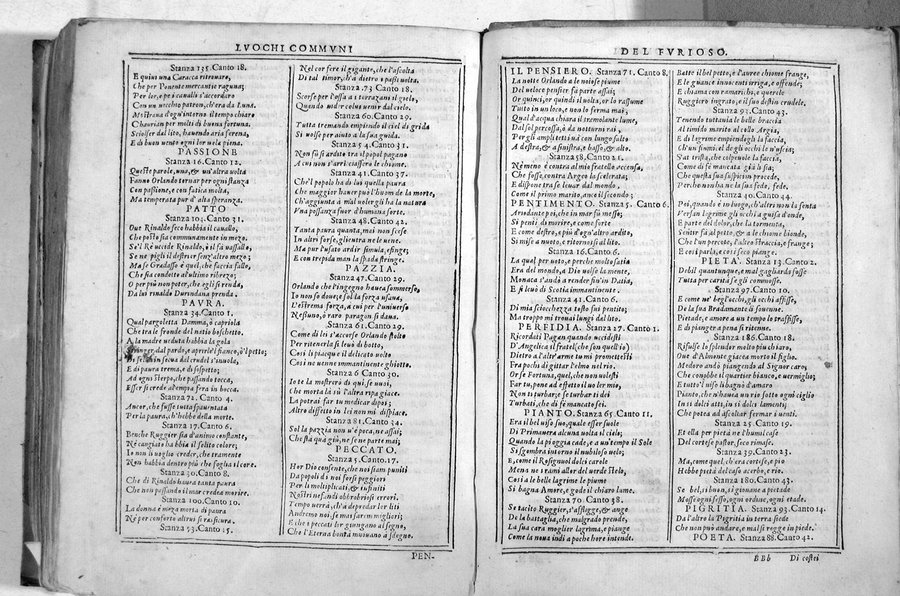 LVOCHI COMMVNI
Stanza 135. Canto 18.
E quiui una Caracca ritrouaro,
Che per Ponente mercantie raguna;
Per loro, e pei caualli s'accordaro
Con un uecchio patron, ch'era da Luna.
Mostraua d'ogn'intorno il tempo chiaro
Ch'aurian per molti dì buona fortuna.
Sciolser dal lito, hauendo aria serena,
E di buon uento ogni lor uela piena.
PASSIONE
Stanza 16. Canto 12.
Queste parole, una, & un'altra uolta
Fanno Orlando tornar per ogni stanza
Con passione, e con fatica molta,
Ma temperata pur d'alta speranza.
PATTO
Stanza 104. Canto 31.
Due Rinaldo seco habbia il cauallo,
Che posto sia communemente in mezo.
Se'l Re uccide Rinaldo, il fa vassallo,
Se ne pigli il destrier senz'altro mezo;
Ma se Gradasso è quel, che faccia fallo,
Che sia condotto al ultimo ribrezo;
O per più non poter, che egli si renda,
Da lui rinaldo Durindana prenda.
PAVRA.
Stanza 34. Canto 1.
Qual pargoletta Damma, ò capriola
Che tra le fronde del natio boschetto,
A la madre ueduta habbia la gola
Stringer dal pardo, e aprirle'l fianco, ò'l petto;
Di selua in selua dal crudel s'inuola,
E di paura trema, e di sospetto;
Ad ogni sterpo, che passando tocca,
Esser si crede al'empia fera in bocca.
Stanza 72. Canto 4.
Ancor, che fusse tutta spauentata
Per la paura, ch'hebbe della morte.
Stanza 17. Canto 6.
Benche Ruggier sia d'animo constante,
Ne cangiato habbia il solito colore;
Io non li uoglio creder, che tramente
Non habbia dentro più che foglia il core.
Stanza 30. Canto 8.
Che di Rinaldo hauea tanta paura
Che non passando il mar credea morire.
Stanza 100. Canto 10.
La donna è meza morta di paura
Ne per conforto altrui si rassicura.
Stanza 53. Canto 15.
Nel cor fere il gigante, che l'ascolta
Di tal timor, ch'à dietro i passi uolta.
Stanza 73. Canto 18.
Scorse per l'ossa a i terrazani il gielo,
Quando uider colui uenir dal cielo.
Stanza 60. Canto 29.
Tutta tremando empiendo il ciel di grida
Si uolse per aiuto a la sua guida.
Stanza 54. Canto 31.
Non fù sì ardito tra il popol pagano
A cui non s'arricciassero le chiome.
Stanza 41. Canto 37.
Che'l popolo ha di lui quella paura
Che maggior hauer può l'huom de la morte,
Ch'aggiunta a mal uolergli ha la natura
Vna possanza fuor d'humana sorte.
Stanza 48. Canto 42.
Tanta paura quanta, mai non scese
In altri forse, gli entra ne le uene.
Ma pur l'usato ardir simula, e finge;
E con trepida man la spada stringe.
PAZZIA.
Stanza 47. Canto 29.
Orlando che l'ingegno hauea sommerso,
Io non so doue, e sol la forza usaua,
L'estrema forza, a cui per l'uniuerso
Nessuno, ò raro paragon si daua.
Stanza 61. Canto 29.
Come di lei s'accorse Orlando stolto
Per ritenerla si leuò di botto,
Così li piacque il delicato uolto
Così ne uenne immantinente ghiotto.
Stanza 6 Canto 30.
Io te la mostrerò di qui se uuoi,
Che morta là sù l'altra ripa giace.
La potrai far tu medicar dipoi;
Altro diffetto in lei non mi dispiace.
Stanza 81. Canto 34.
Sol la pazzia non u'è poca, ne assai;
Che sta quà giù, ne se ne parte mai;
PECCATO.
Stanza 5. Canto. 17.
Hor Dio consente, che noi siam puniti
Da popoli di noi forse peggiori
Per li multiplicati, & infiniti
Nostri nefandi obbrobriosi errori.
Tempo uerra, ch'a depredar lor liti
Andremo noi, se mai saren migliori;
E che i peccati lor giungano al segno,
Che l'Eterna bontà muouano a sdegno.
PEN-
DEL FVRIOSO.
IL PENSIERO. Stanza 71. Canto 8.
La notte Orlando a le noiose piume
Del veloce pensier fa parte assai;
Or quinci, or quindi il uolta, or lo rassume
Tutto in un loco, e non lo ferma mai;
Qual d'acqua chiara il tremolante lume,
Dal sol percossa, ò da notturni rai,
Per gli ampli tetti uà con lungo salto
A destra, & a sinistra, e basso, & alto.
Stanza 58. Canto 21.
Ne meno è contra al mio fratello accensa,
Che fosse contra Argeo la scelerata;
E dispone trase leuar dal mondo,
Come il primo marito, anco il secondo;
PENTIMENTO. Stanza 5. Canto 6.
Arrodante poi, che in mar fù messo;
Si pentì di morire, e come forte
E come destro, e più d'ogn'altro ardito,
Si mise a nuoto, e ritornosi al lito.
Stanza 16. Canto 6.
La qual per uoto, e perche molto satia
Era del mondo, a Dio uolse la mente,
Monaca s'andò a render sin'in Datia,
E si leuò di Scotia immantinente.
Stanza 41. Canto 6.
Di mia sciocchezza tosto fui pentito;
Ma troppo mi trouai lungi dal lito.
PERFIDIA. Stanza 27. Canto 1.
Ricordati Pagan quando uccidesti
D'Angelica il fratel (che son quell'io)
Dietro a l'altr'arme tu mi promettesti
Fra pochi dì gittar l'elmo nel rio.
Or se Fortuna, quel, che non volesti
Far tu, pone ad effetto il uoler mio,
Non ti turbar; e se turbar ti dei
Turbati, che di fè mancato sei.
PIANTO. Stanza 65. Canto 11.
Era il bel uiso suo, quale esser suole
Di Primauera alcuna uolta il cielo;
Quando la pioggia cade, e a un tempo il Sole
Si sgombra intorno il nubiloso uelo;
E, come il Rosignuol dolci carole
Mena ne i rami allor del uerde stelo,
Così a le belle lagrime le piume
Si bagna Amore, e gode il chiaro lume.
Stanza 70. Canto 38.
Se tacito Ruggier, s'affligge, & ange
De la battaglia, che malgrado prende,
La sua cara moglier lagrima, e piange
Come la noua indi a poche hore intende.
Batte il bel petto, e l'auree chiome frange,
E le guance innocenti irriga, e offende;
E chiama con ramarichi, e querele
Ruggiero ingrato, e il suo destin crudele.
Stanza 92. Canto 43.
Tenendo tuttauia le belle braccia
Al timido marito al collo Argia,
E di lagrime empiendogli la faccia,
Ch'un fiumi, el de gli occhi le n'uscia;
S'at trista, che colpeuole la faccia,
Come di fè mancata già li sia;
Che questa sua suspicion procede,
Perche non ha ne la sua fede, fede.
Stanza 40. Canto 44.
Poi, quando è in luogo, ch'altri non la senta
Versan lagrime gli occhi a guisa d'onde,
E parte del dolor, che la tormenta,
Sentir fà al petto, & a le chiome bionde,
Che l'un percote, l'altro straccia, e frange;
E così parla, e così seco piange.
PIETA'. Stanza 13. Canto 2.
Debil quantunque, e mal gagliardo fusse
Tutta per carità se gli commosse.
Stanza 97. Canto 10.
E come ne' begl'occhi, gli occhi affisse,
De la sua Bradamante li souenne.
Pietade, e amore a un tempo lo traffisse,
E di pianger a pena si ritenne.
Stanza 186. Canto 18.
Rifulse lo splendor molto più chiaro,
Oue d'Almonte giacea morto il figlio.
Medoro andò piangendo al Signor caro;
Che conobbe il quartier bianco, e uermiglio;
E tutto'l uiso li bagnò d'amaro
Pianto, che n'hauea un rio sotto ogni ciglio
In sì dolci atti, in sì dolci lamenti,
Che potea ad ascoltar fermar i uenti.
Stanza 25. Canto 19.
Et ella per pietà ne l'humil case
Del cortese pastor, seco rimase.
Stanza 39. Canto 23.
Ma, come quel, ch'era cortese, e pio
Hebbe pietà del caso acerbo, e rio.
Stanza 180. Canto 43.
Se bel, sì buon, sì giouane a pietade
Mosse ogni sesso, ogni ordine, ogni etade.
PIGRITIA. Stanza 93. Canto 14.
Da l'altro la Pigritia in terra siede
Che non può andare, e mal si regge in piede.
POETA. Stanza 88. Canto 42.
BBb Di costei